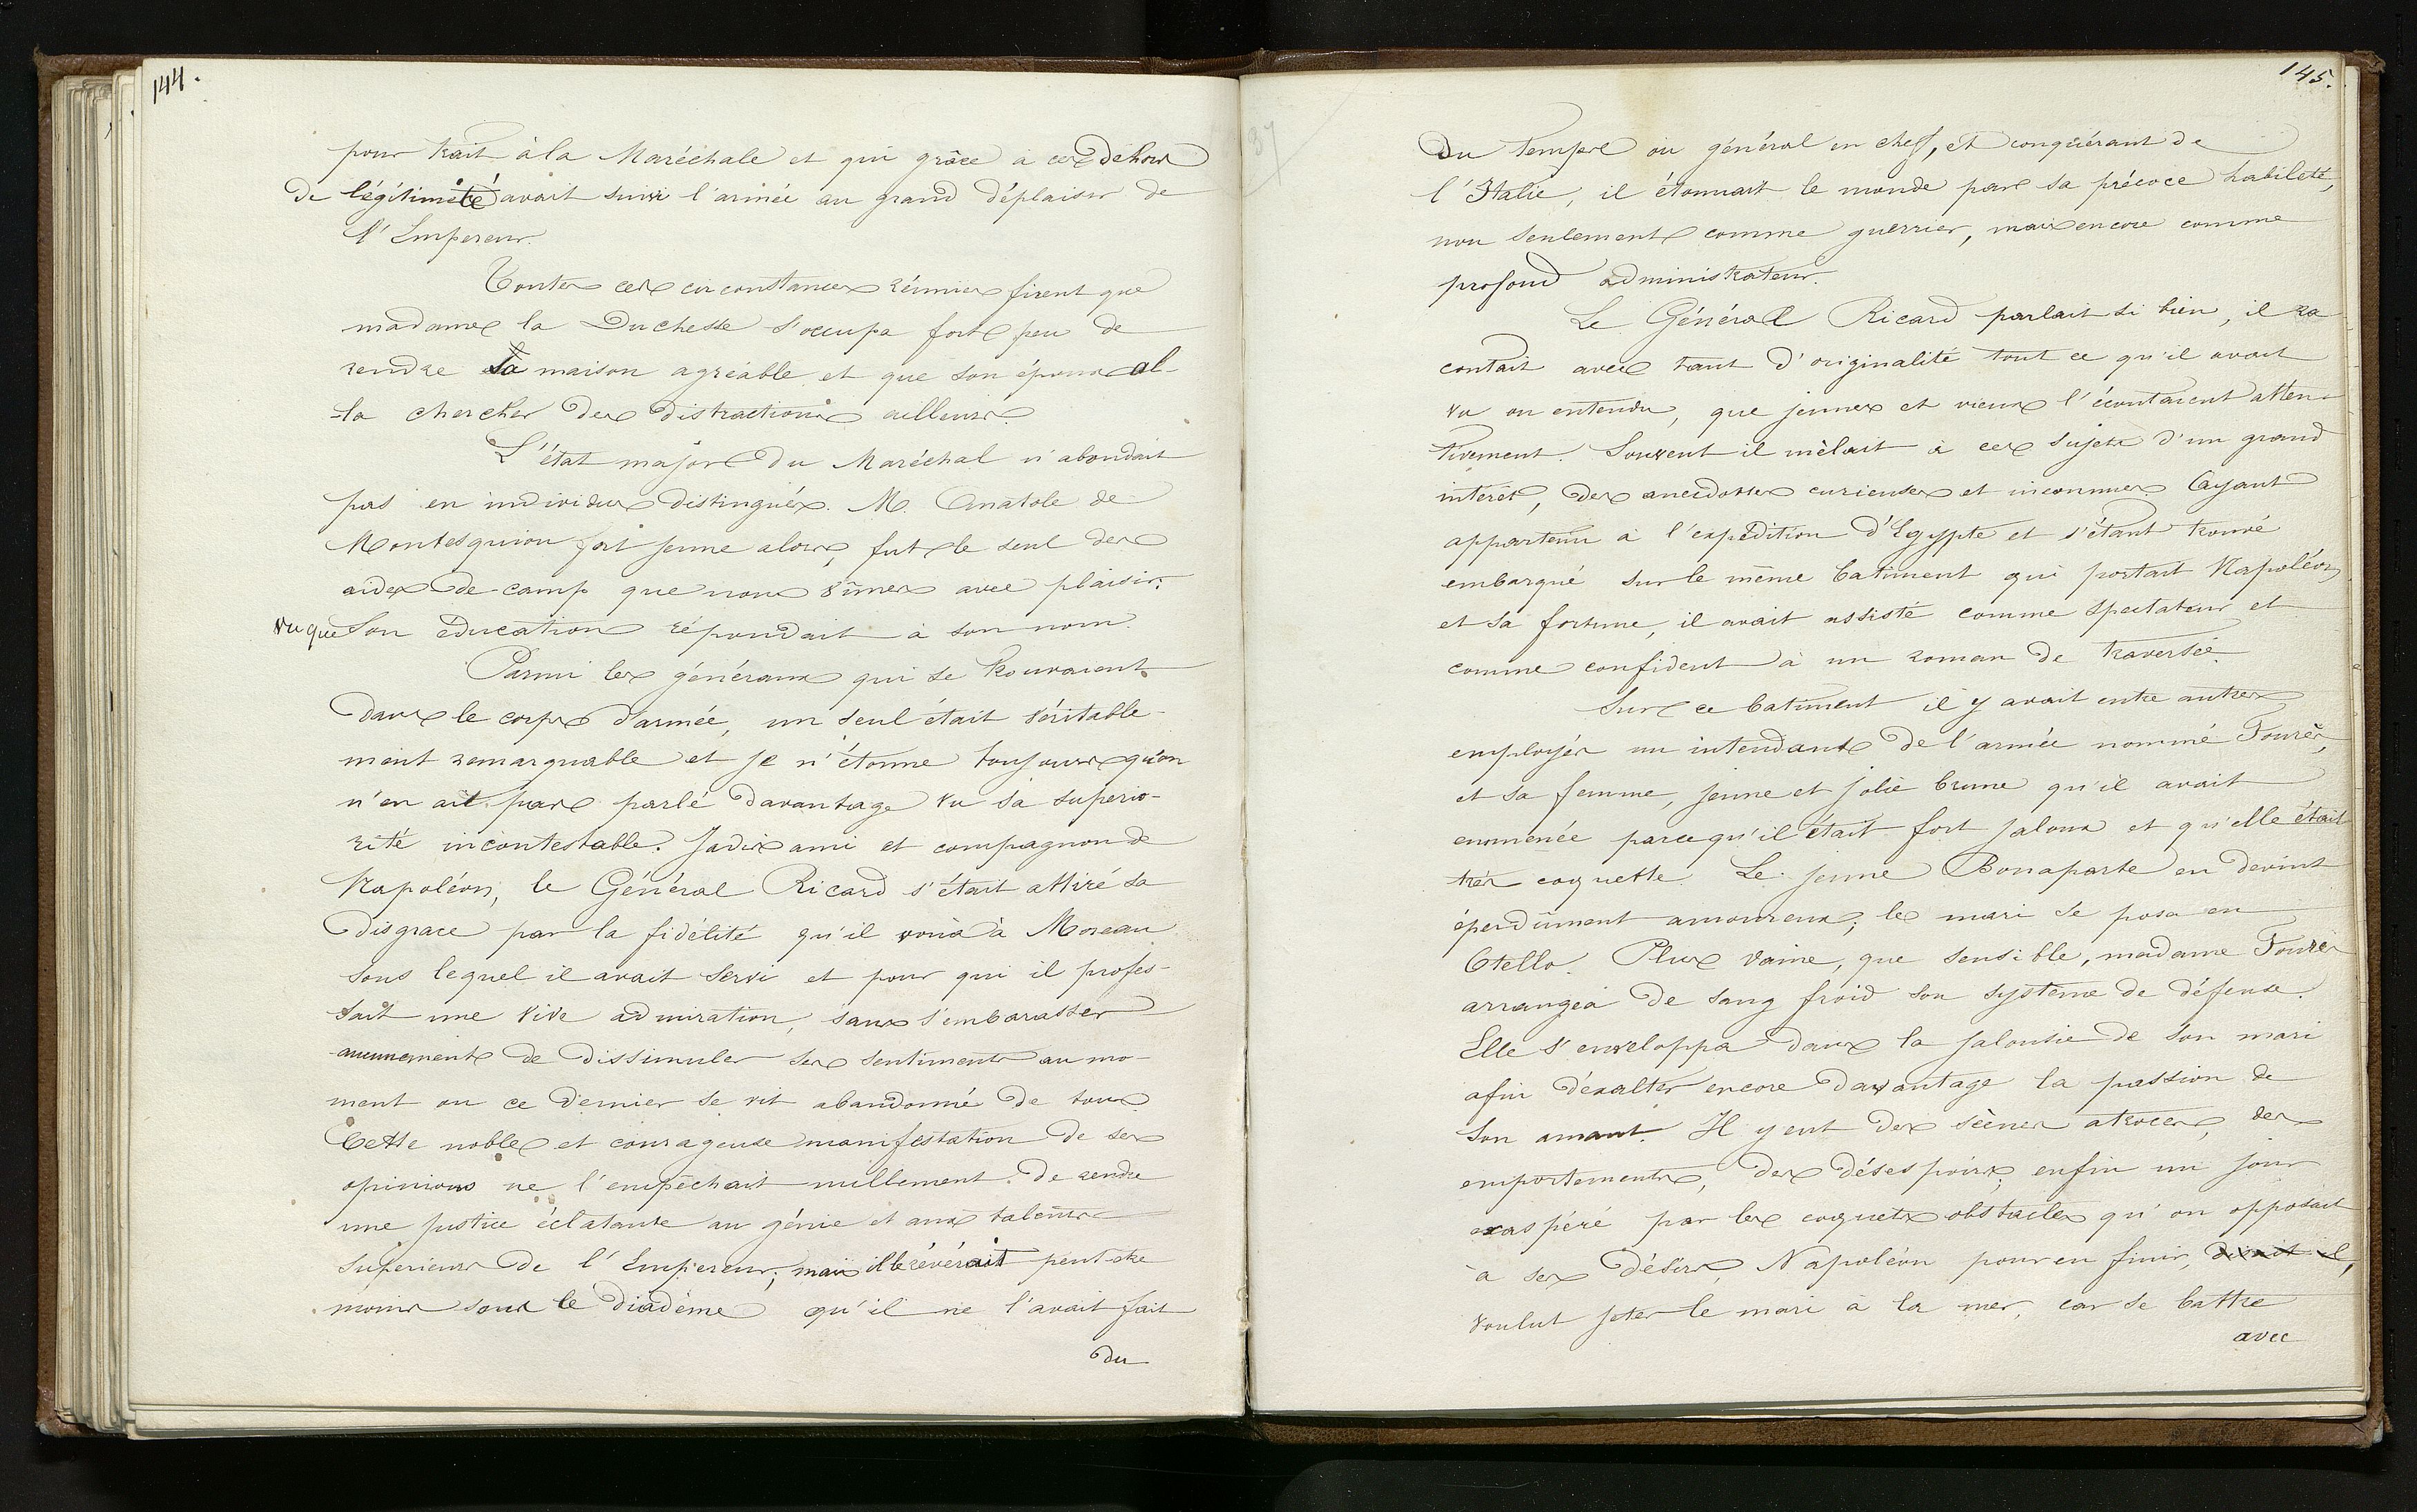 144.
pour trait à la Maréchale et qui grâce à ces dehors
de légitimité avait suivi l'armée au grand déplaisir de
l'Empereur.
Toutes ces circonstances réunies firent que
madame la Duchesse s'occupa fort peu de
rendre sa maison agréable et que son époux al-
la chercher des distractions ailleurs.
L'état major du Maréchal n'abondait
pas en individus distingués. M. Anatole de
Montesquiou fort jeune alors, fut le seul des
aides de camp que nous vîmes avec plaisir;
vu que son éducation répondait à son nom.
Parmi les généraux qui se trouvaient
dans le corps d'armée, un seul était véritable-
ment remarquable et je m'étonne toujours qu'on
n'en ait pas parlé davantage vu sa supério-
rité incontestable. Jadis ami et compagnon de
Napoléon, le Général Ricard s'était attiré sa
disgrace par la fidélité qu'il voua à Moreau
sous lequel il avait servi et pour qui il profes-
sait une vive admiration, sans s'embarasser
aucunement de dissimuler ses sentiments au mo-
ment ou ce dernier se vit abandonné de tous.
Cette noble et courageuse manifestation de ses
opinions ne l'empêchait nullement de rendre
une justice éclatante au génie et aux talents
supérieurs de l'Empereur; mais il le révérait peut-etre
moins sous le diadème qu'il ne l'avait fait
du
145.
du temps où général en chef, et conquérant de
l'Italie, il étonnait le monde par sa précoce habileté,
non seulement comme guerrier, mais encore comme
profond administrateur.
Le Général Ricard parlait si bien, il ra
contait avec tant d'originalité tout ce qu'il avait
vu ou entendu, que jeunes et vieux l'écoutaient atten-
tivement. Souvent il mêlait à ces sujets d'un grand
intérêt, des anecdotes curieuses et inconnues. Ayant
appartenu à l'expédition d'Egypte et s'étant trouvé
embarqué sur le même batiment qui portait Napoléon
et sa fortune, il avait assisté comme spectateur et
comme confident à un roman de traversée.
Sur ce batiment il y avait entre autres
employés un intendant de l'armée nommé Fourès,
et sa femme, jeune et jolie brune qu'il avait
emmenée parcequ'il était fort jaloux et qu'elle était
très coquette. Le jeune Bonaparte en devint
éperdûment amoureux; le mari se posa en
Otello. Plus vaine, que sensible, madame Fourès
arrangea de sang froid son système de défense.
Elle s'enveloppa dans la jalousie de son mari
afin d'exalter encore davantage la passion de
son amant. Il y eut des scènes atroces, des
emportements, des désespoirs; enfin un jour
exaspéré par les coquets obstacles qu'on opposait
à ses désirs, Napoléon pour en finir, disait il,
voulut jeter le mari à la mer, car se battre
avec